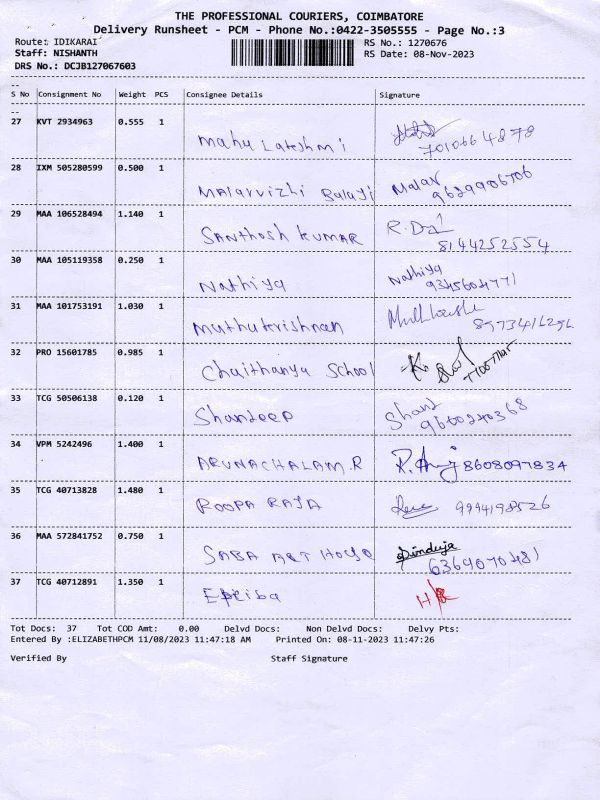 THE PROFESSIONAL COURIERS, COIMBATORE
Delivery Runsheet - PCM - Phone No.:0422-3505555 - Page No.:3
Route: IDIKARAI RS No.: 1270676
Staff: NISHANTH RS Date: 08-Nov-2023
DRS No.: DCJB127067603
S No Consignment No Weight PCS Consignee Details Signature
27 KVT 2934963 0.555 1
Mahu Lakshmi
28 IXM 505280599 0.500 1
Malarvizhi Balaji Malar 9629906706
29 MAA 106528494 1.140 1
Santhosh Kumar 8144252554
30 MAA 105119358 0.250 1
Nathiya Nathiya
31 MAA 101753191 1.030 1
Muthukrishnan
32 PRO 15601785 0.985 1
Chaithanya School
33 TCG 50506138 0.120 1
Shandeep
34 VPM 5242496 1.400 1
ARUNACHALAM.R 8608097834
35 TCG 40713828 1.480 1
ROOPA RAJA 9994198526
36 MAA 572841752 0.750 1
SABA ART House Dinduja
6369070481
37 TCG 40712891 1.350 1
Tot Docs: 37 Tot COD Amt: 0.00 Delvd Docs: Non Delvd Docs: Delvy Pts:
Entered By :ELIZABETHPCM 11/08/2023 11:47:18 AM Printed On: 08-11-2023 11:47:26
Verified By Staff Signature